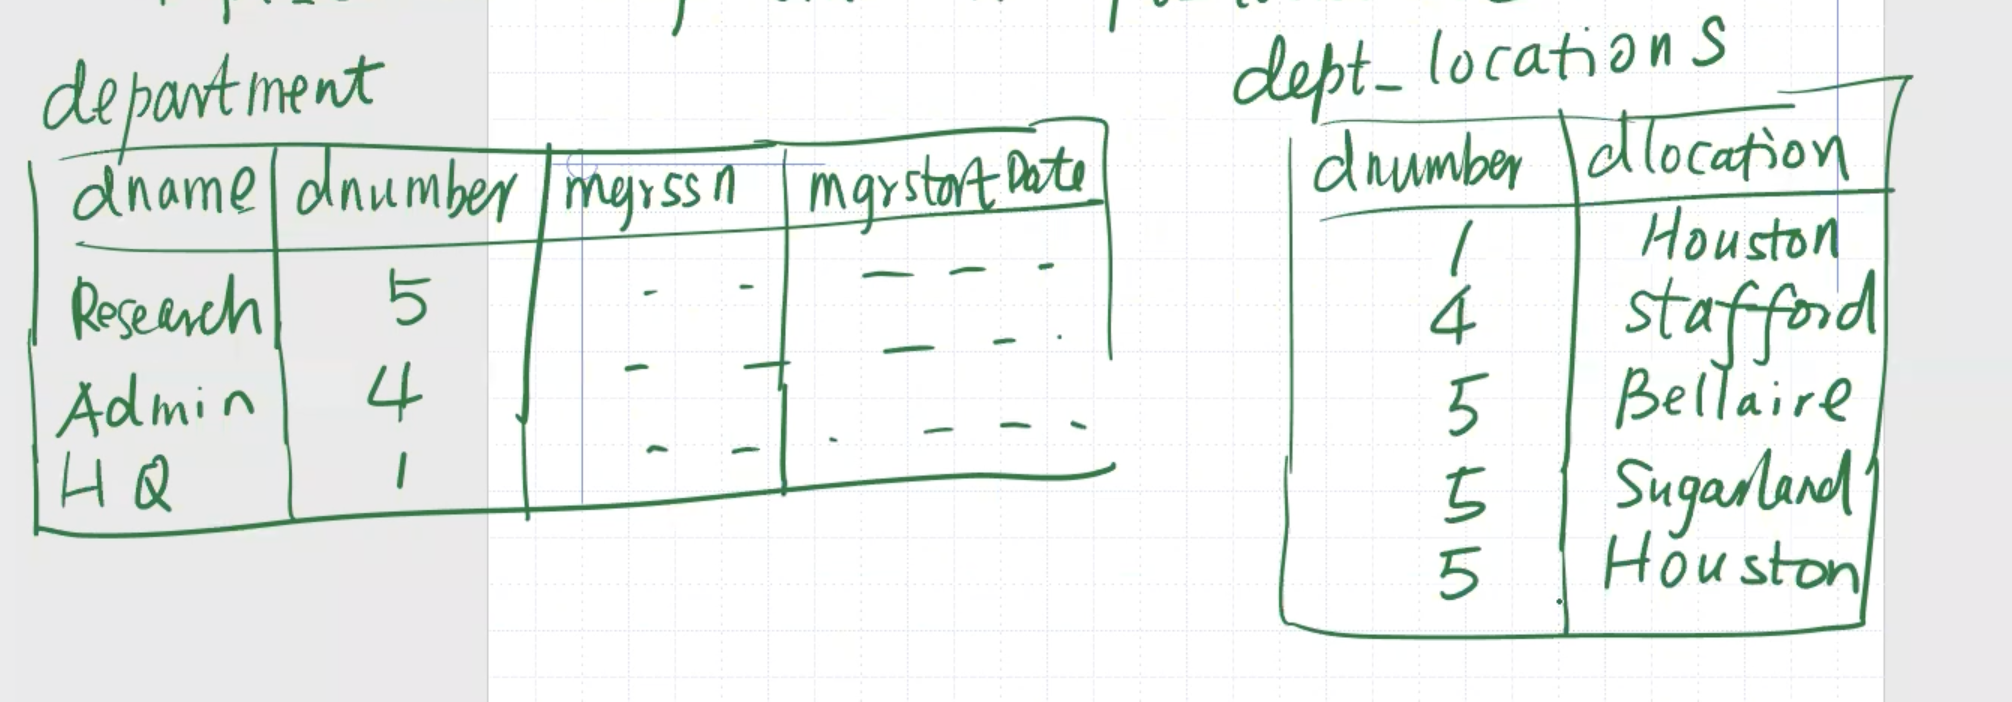 department
dname dnumber mgrssn mgrstartDate
Research 5 - - — — -
Admin 4 - — — - .
HQ 1 - - . - — -
dept_locations
dnumber dlocation
1 Houston
4 Stafford
5 Bellaire
5 Sugarland
5 Houston